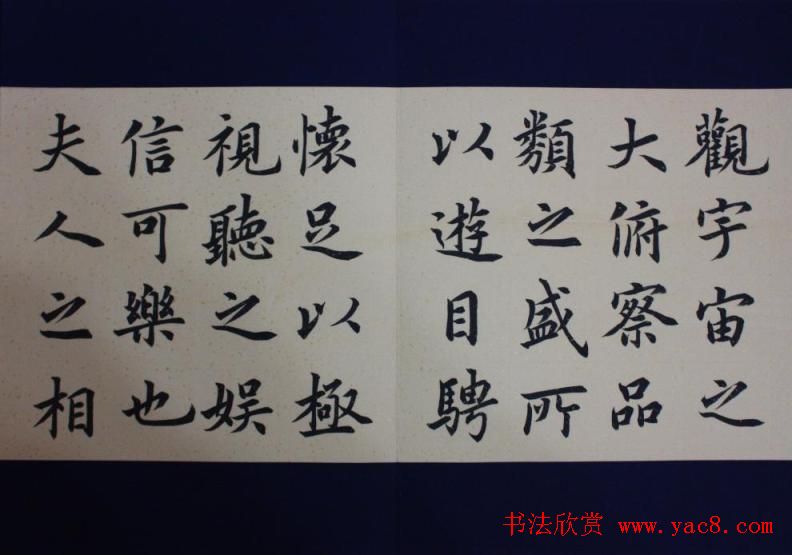 觀宇宙之
大俯察品
類之盛所
以遊目騁
懷足以極
視聽之娛
信可樂也
夫人之相
书法欣赏 www.yac8.com